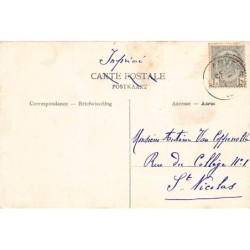 Imprimé
CARTE POSTALE
POSTKAART
Correspondance — Briefwisseling
Adresse — Adres
Monsieur Antoine Van
Rue du Collège N° 1
St Nicolas